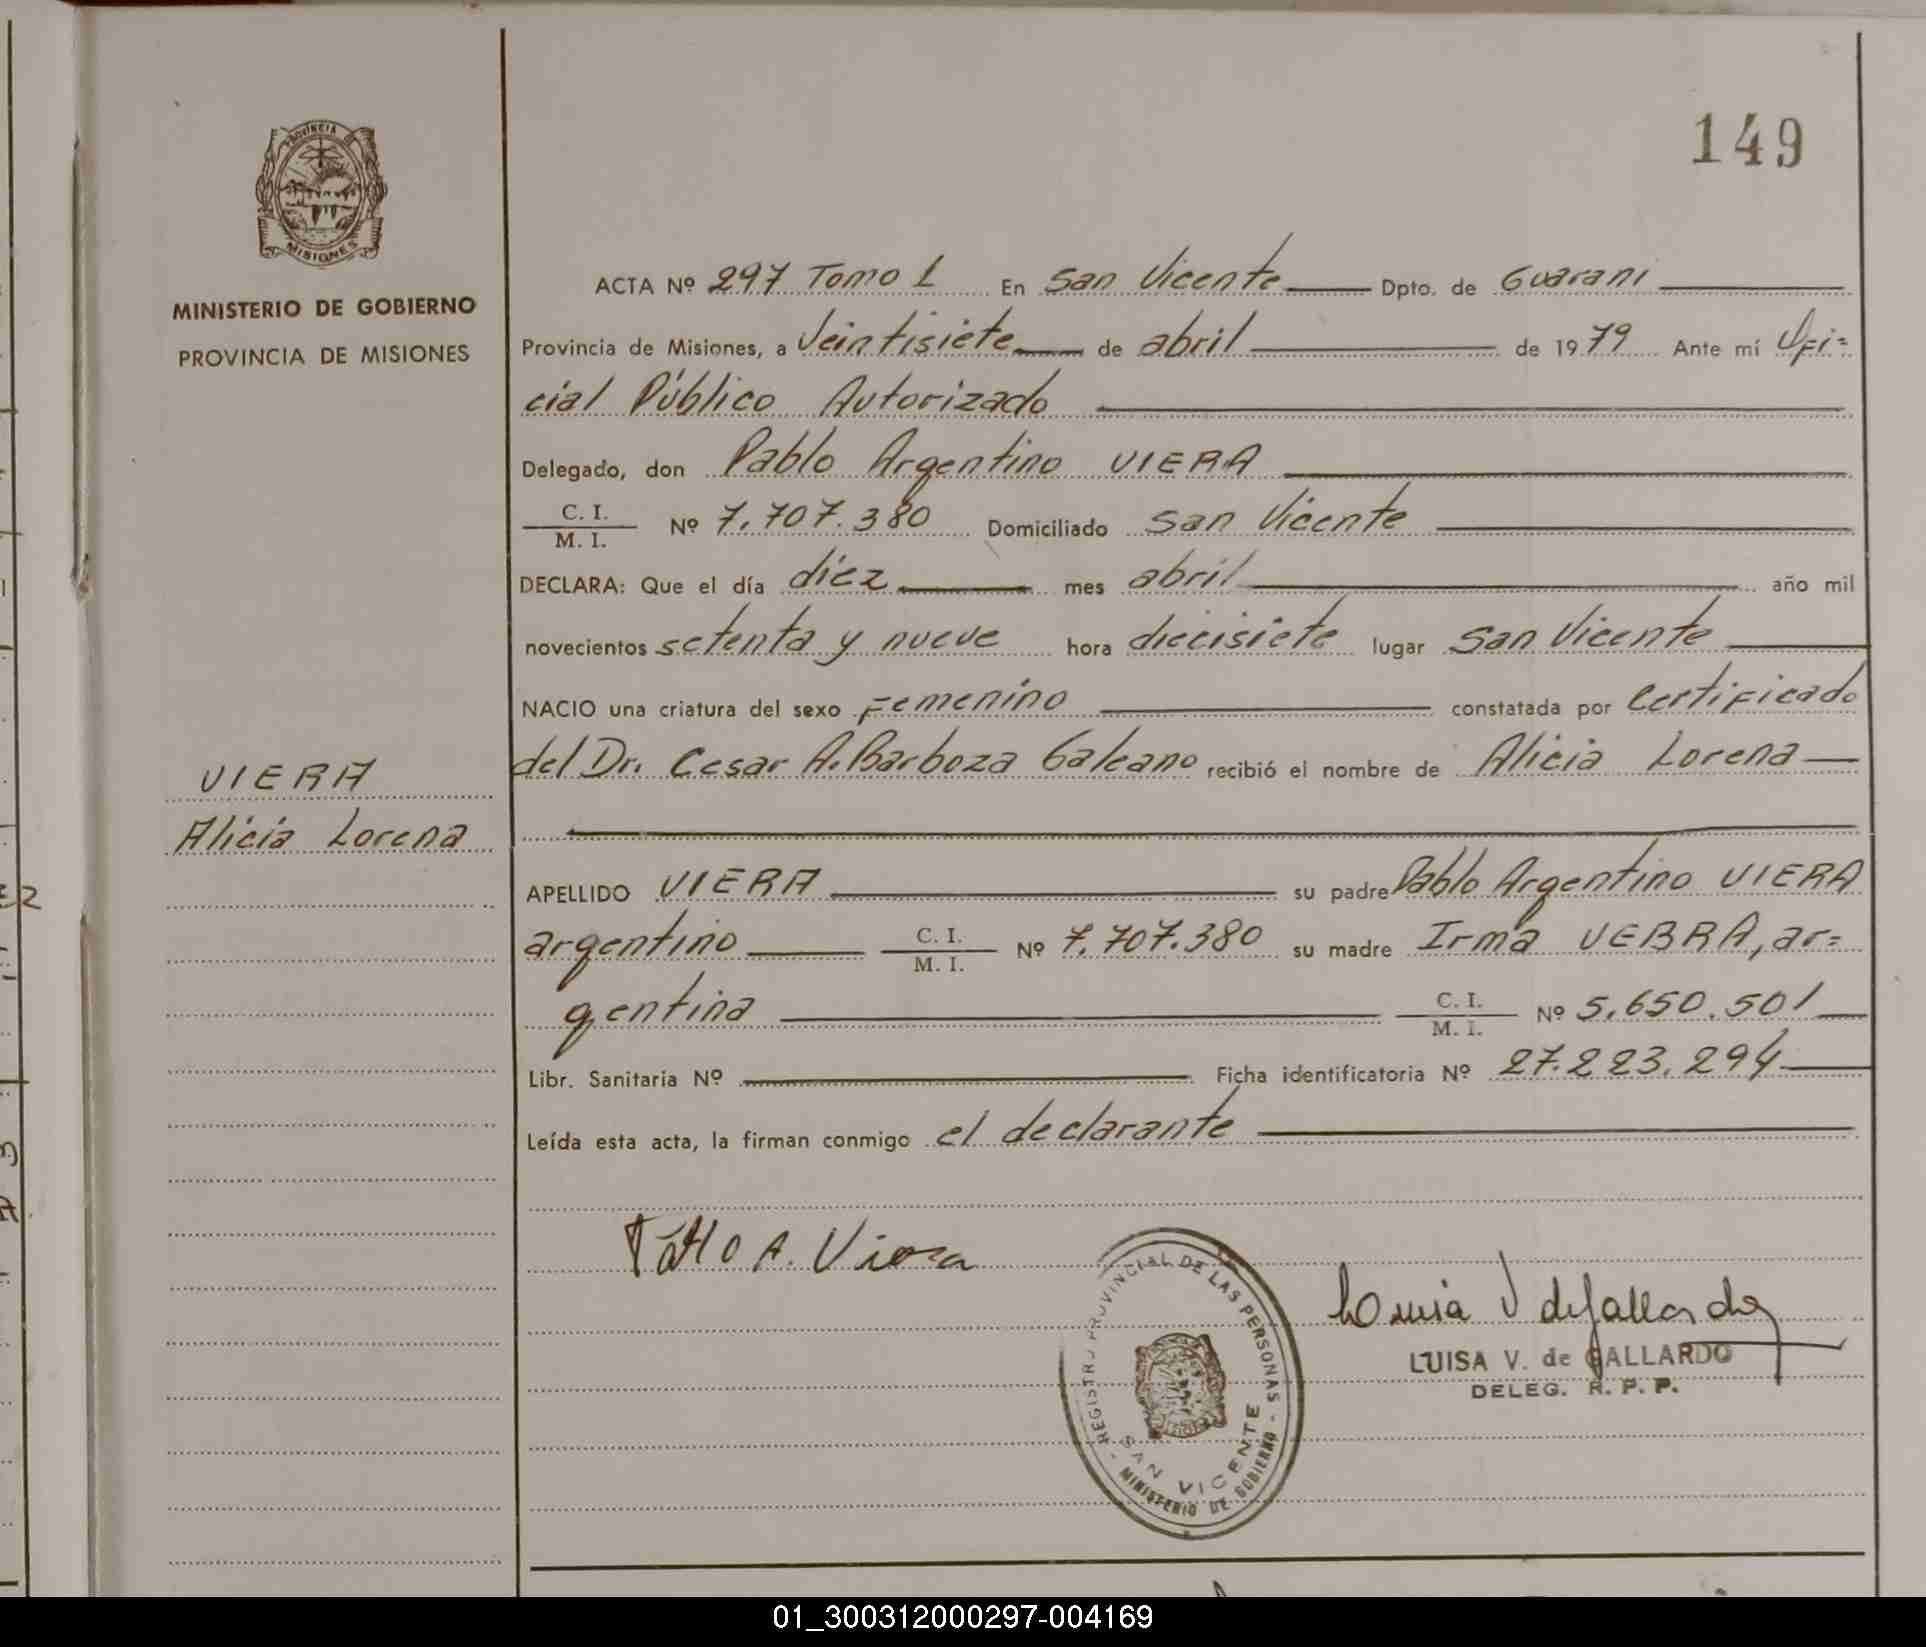 149
PROVINCIA DE
MISIONES
MINISTERIO DE GOBIERNO
PROVINCIA DE MISIONES
ACTA Nº 297 Tomo 1 En San Vicente Dpto. de Guaraní
Provincia de Misiones, a Veintisiete de abril de 1979 Ante mí Ofi=
cial Público Autorizado
Delegado, don Pablo Argentino VIERA
C. I.
M. I. Nº 7.707.380 Domiciliado San Vicente
DECLARA: Que el día diez mes abril año mil
novecientos setenta y nueve hora diecisiete lugar San Vicente
NACIO una criatura del sexo Femenino constatada por Certificado
del Dr. Cesar A. Barboza Galeano recibió el nombre de Alicia Lorena
VIERA
Alicia Lorena
APELLIDO VIERA su padre Pablo Argentino VIERA
argentino C. I. M. I. Nº 7.707.380 su madre Irma VEBRA, ar=
gentina C. I. M. I. Nº 5.650.501
Libr. Sanitaria Nº Ficha identificatoria Nº 27.223.294
Leída esta acta, la firman conmigo el declarante
Pablo A. Viera
Luisa V de Gallardo
LUISA V. de GALLARDO
DELEG. R. P. P.
REGISTRO PROVINCIAL DE LAS PERSONAS
SAN VICENTE
MINISTERIO DE GOBIERNO
01_300312000297-004169